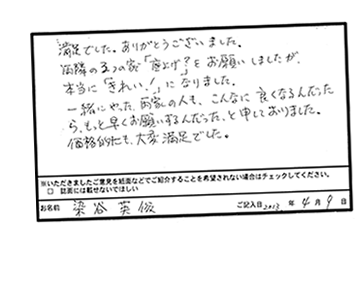 満足でした。ありがとうございました。
両隣の五つの家「底上げ?」をお願いしましたが、
本当に「きれい!」になりました。
一緒にやった両家の人も、こんなに良くなるんだった
ら、もっと早くお願いするんだった、と申しておりました。
価格的にも、大変満足でした。
※いただきましたご意見を紙面などでご紹介することを希望されない場合はチェックしてください。
□ 誌面には載せないでほしい
お名前 染谷 英俊 ご記入日 2013 年 4 月 9 日